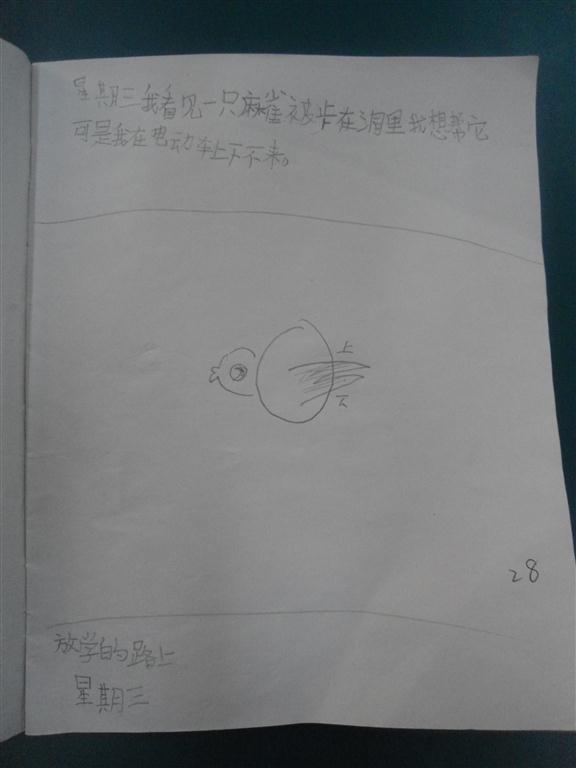 星期三我看见一只麻雀被卡在洞里我想帮它
可是我在电动车上下不来。
上
下
28
放学的路上
星期三